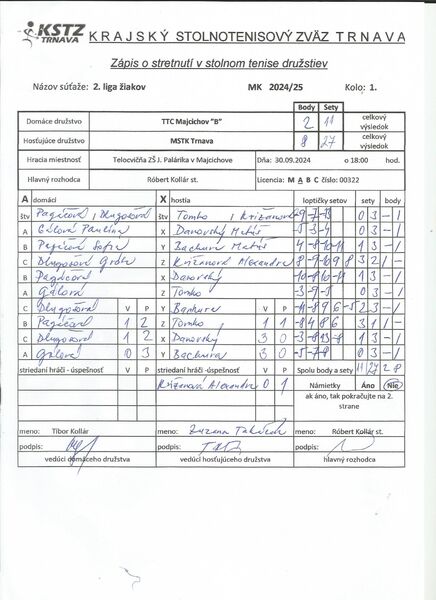 KSTZ
TRNAVA
KRAJSKÝ STOLNOTENISOVÝ ZVÄZ TRNAVA
Zápis o stretnutí v stolnom tenise družstiev
Názov súťaže: 2. liga žiakov MK 2024/25 Kolo: 1.
Body Sety
Domáce družstvo TTC Majcichov "B" 2 11 celkový výsledok
Hosťujúce družstvo MSTK Trnava 8 27 celkový výsledok
Hracia miestnosť Telocvičňa ZŠ J. Palárika v Majcichove Dňa: 30.09.2024 o 18:00 hod.
Hlavný rozhodca Róbert Kollár st. Licencia: M A B C číslo: 00322
A domáci X hostia loptičky setov sety body
štv Pagáčová, Dlugošová štv Tomko, Križanová 0 3 – 1
A Gálová Paulína X Danovský Matúš -5 -3 -4 0 3 – 1
B Pagáčová Sofia Y Bachura Matúš 1 3 – 1
C Dlugošová Gréta Z Križanová Alexandra 3 2 1 –
B Pagáčová X Danovský 1 3 – 1
A Gálová Z Tomko -3 -9 -5 0 3 – 1
C Dlugošová V P Y Bachura V P 2 3 – 1
B Pagáčová 1 2 Z Tomko 1 1 -8 4 8 6 3 1 1 –
C Dlugošová 1 2 X Danovský 3 0 1 3 – 1
A Gálová 0 3 Y Bachura 3 0 -5 -7 -8 0 3 – 1
striedaní hráči - úspešnosť striedaní hráči - úspešnosť Spolu body a sety 11 27 2 8
Križanová Alexandra 0 1 Námietky Áno Nie
ak áno, tak pokračujte na 2. strane
meno: Tibor Kollár meno: Zuzana meno: Róbert Kollár st.
podpis: podpis: podpis:
vedúci domáceho družstva vedúci hosťujúceho družstva hlavný rozhodca